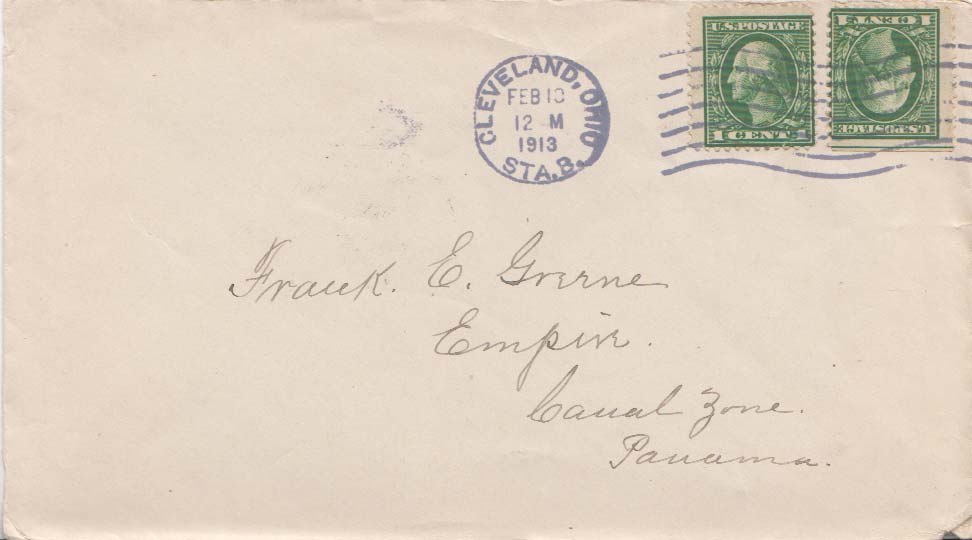 U.S. POSTAGE
1 CENT 1
U.S. POSTAGE
1 CENT 1
CLEVELAND, OHIO
FEB 10
12 M
1913
STA. B.
Frank. E. Greene
Empire.
Canal Zone.
Panama.